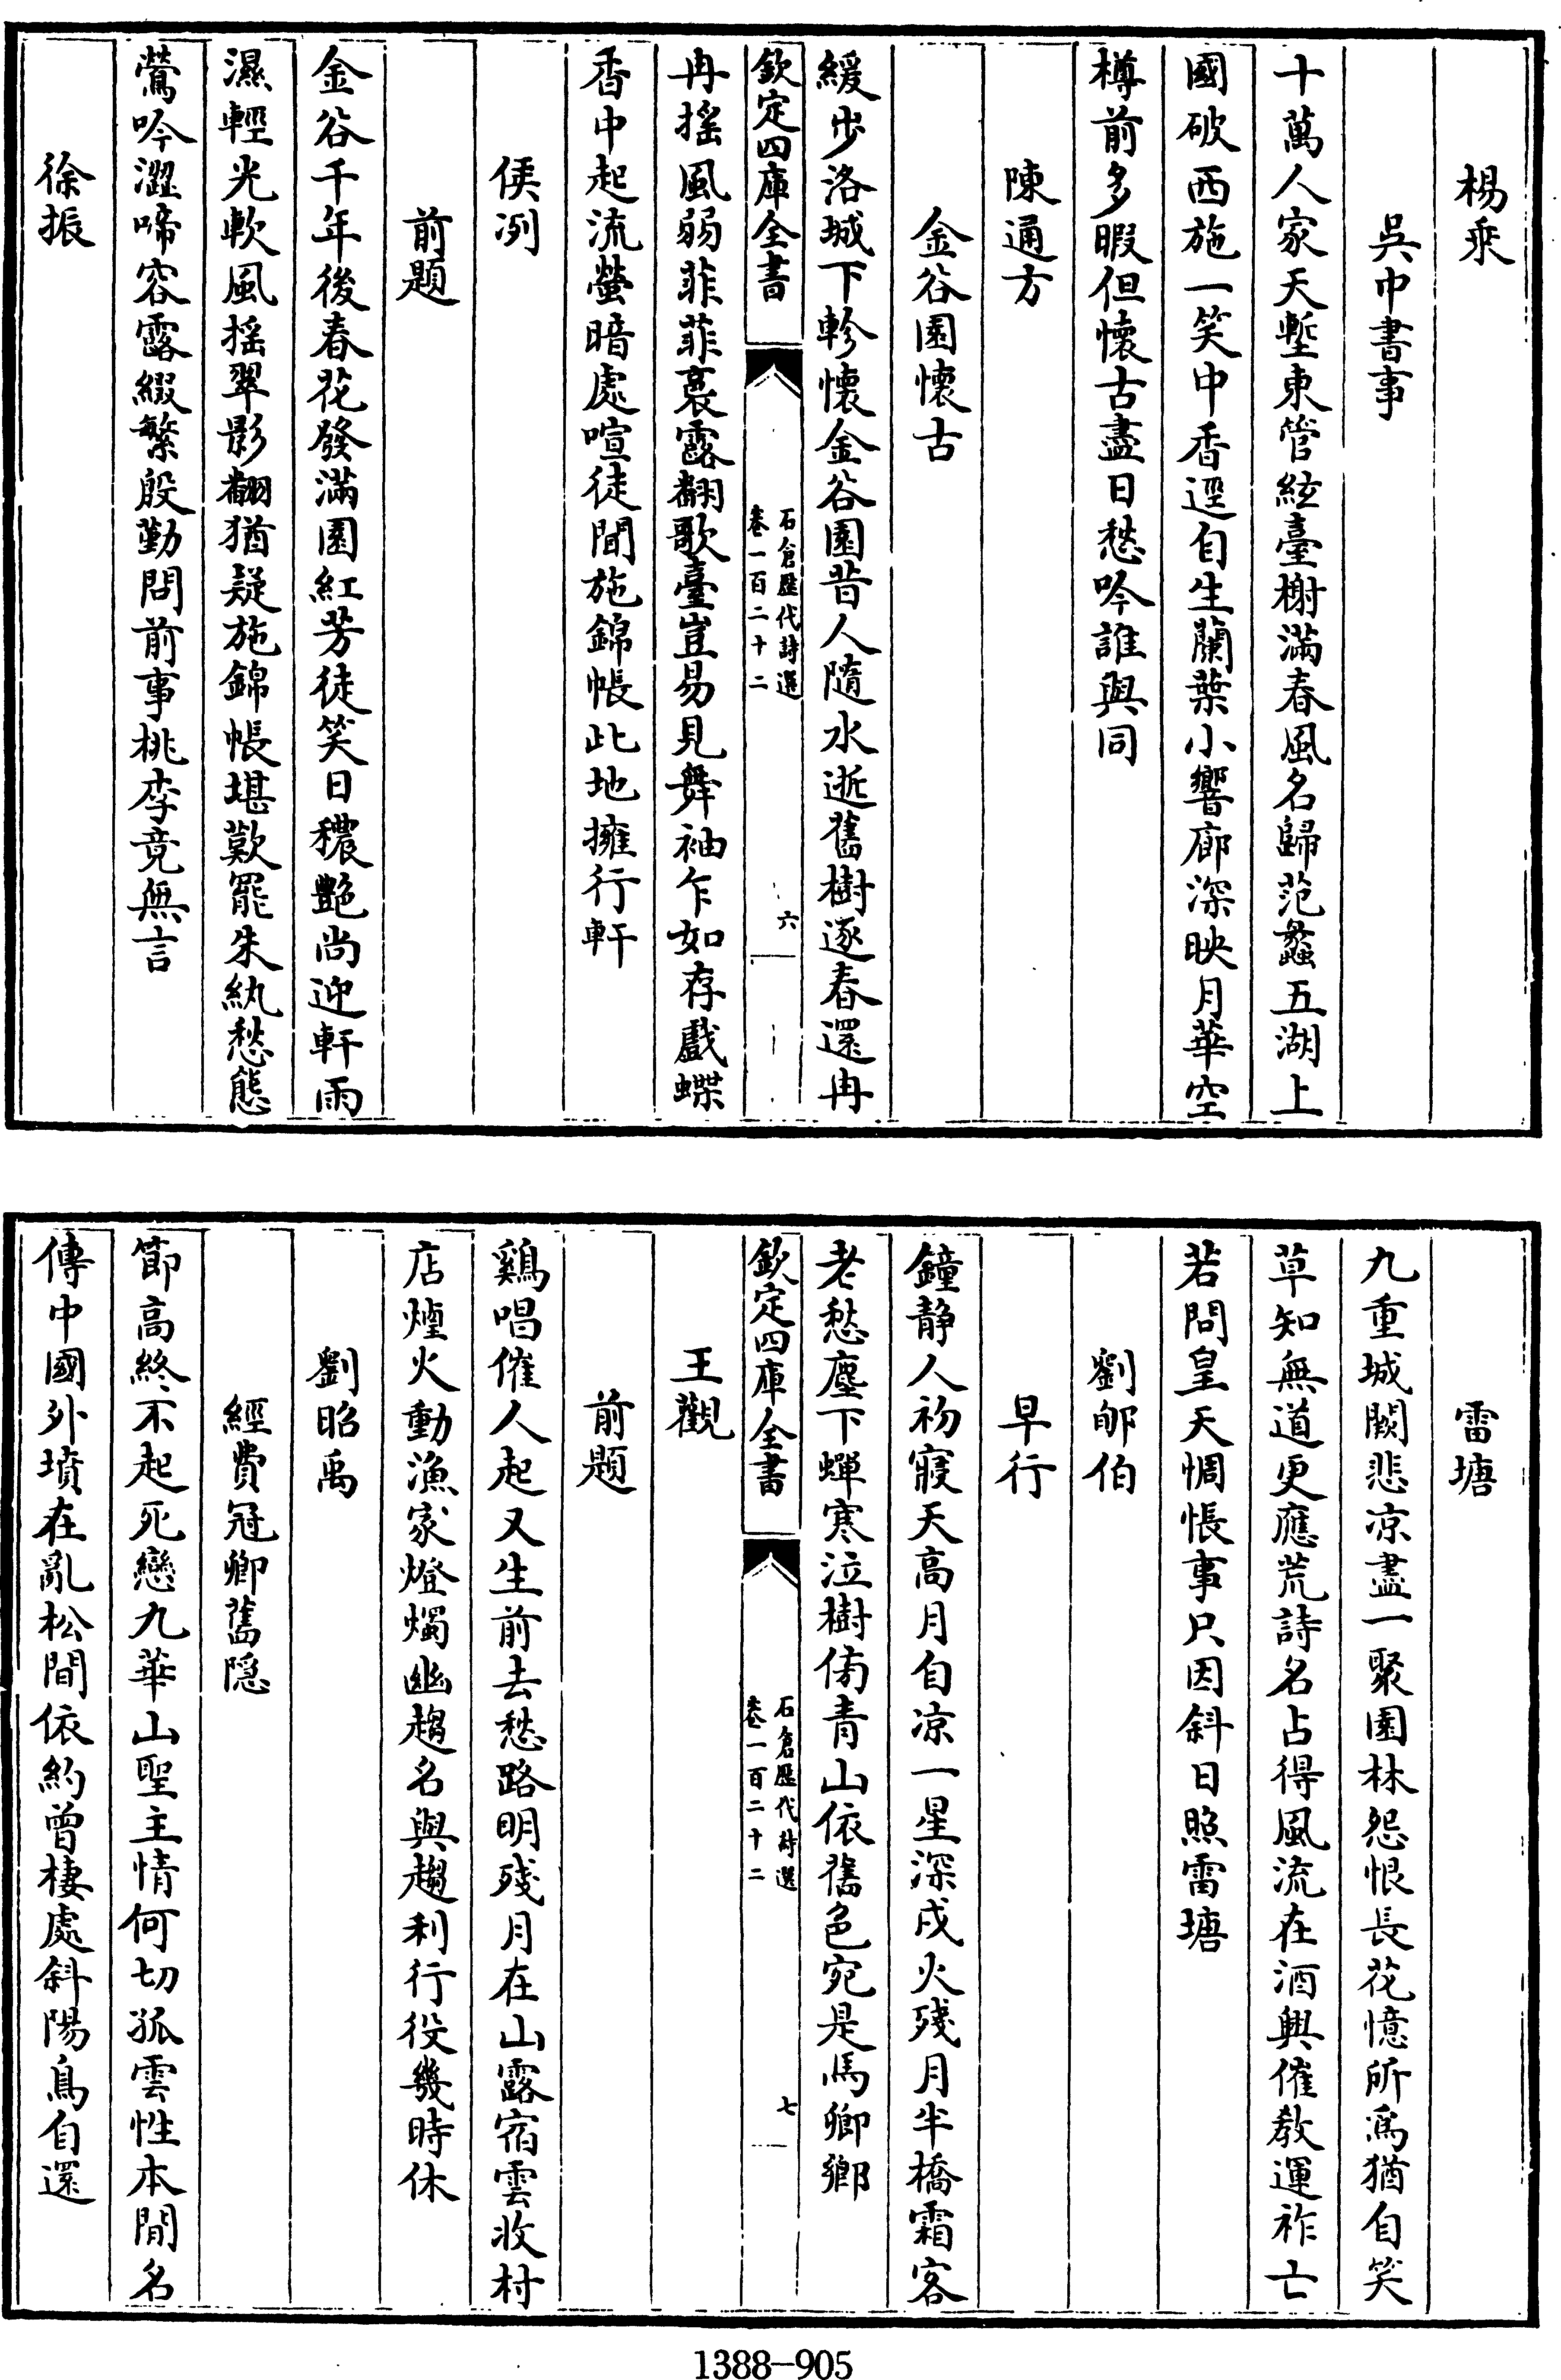 楊乘
吳中書事
十萬人家天塹東管絃臺榭滿春風名歸范蠡五湖上
國破西施一笑中香逕自生蘭葉小響廊深映月華空
樽前多暇但懷古盡日愁吟誰與同
陳通方
金谷園懷古
緩步洛城下軫懷金谷園昔人隨水逝舊樹逐春還冉
欽定四庫全書
石倉歷代詩選
卷一百二十二
六
冉搖風弱菲菲裛露翻歌臺豈易見舞袖乍如存戲蝶
香中起流螢暗處喧徒聞施錦帳此地擁行軒
侯冽
前題
金谷千年後春花發滿園紅芳徒笑日穠艷尚迎軒雨
濕輕光軟風搖翠影翻猶疑施錦帳堪歎罷朱紈愁態
鶯吟澀啼容露綴繁殷勤問前事桃李竟無言
徐振
雷塘
九重城闕悲凉盡一聚園林怨恨長花憶所為猶自笑
草知無道更應荒詩名占得風流在酒興催教運祚亡
若問皇天惆悵事只因斜日照雷塘
劉郇伯
早行
鐘靜人初寢天高月自凉一星深戍火殘月半橋霜客
老愁塵下蟬寒泣樹傍青山依舊色宛是馬卿鄉
欽定四庫全書
石倉歷代詩選
卷一百二十二
七
王觀
前題
鷄唱催人起又生前去愁路明殘月在山露宿雲收村
店煙火動漁家燈燭幽趨名與趨利行役幾時休
劉昭禹
經費冠卿舊隱
節高終不起死戀九華山聖主情何切孤雲性本閒名
傳中國外墳在亂松間依約曾棲處斜陽鳥自還
1388-905